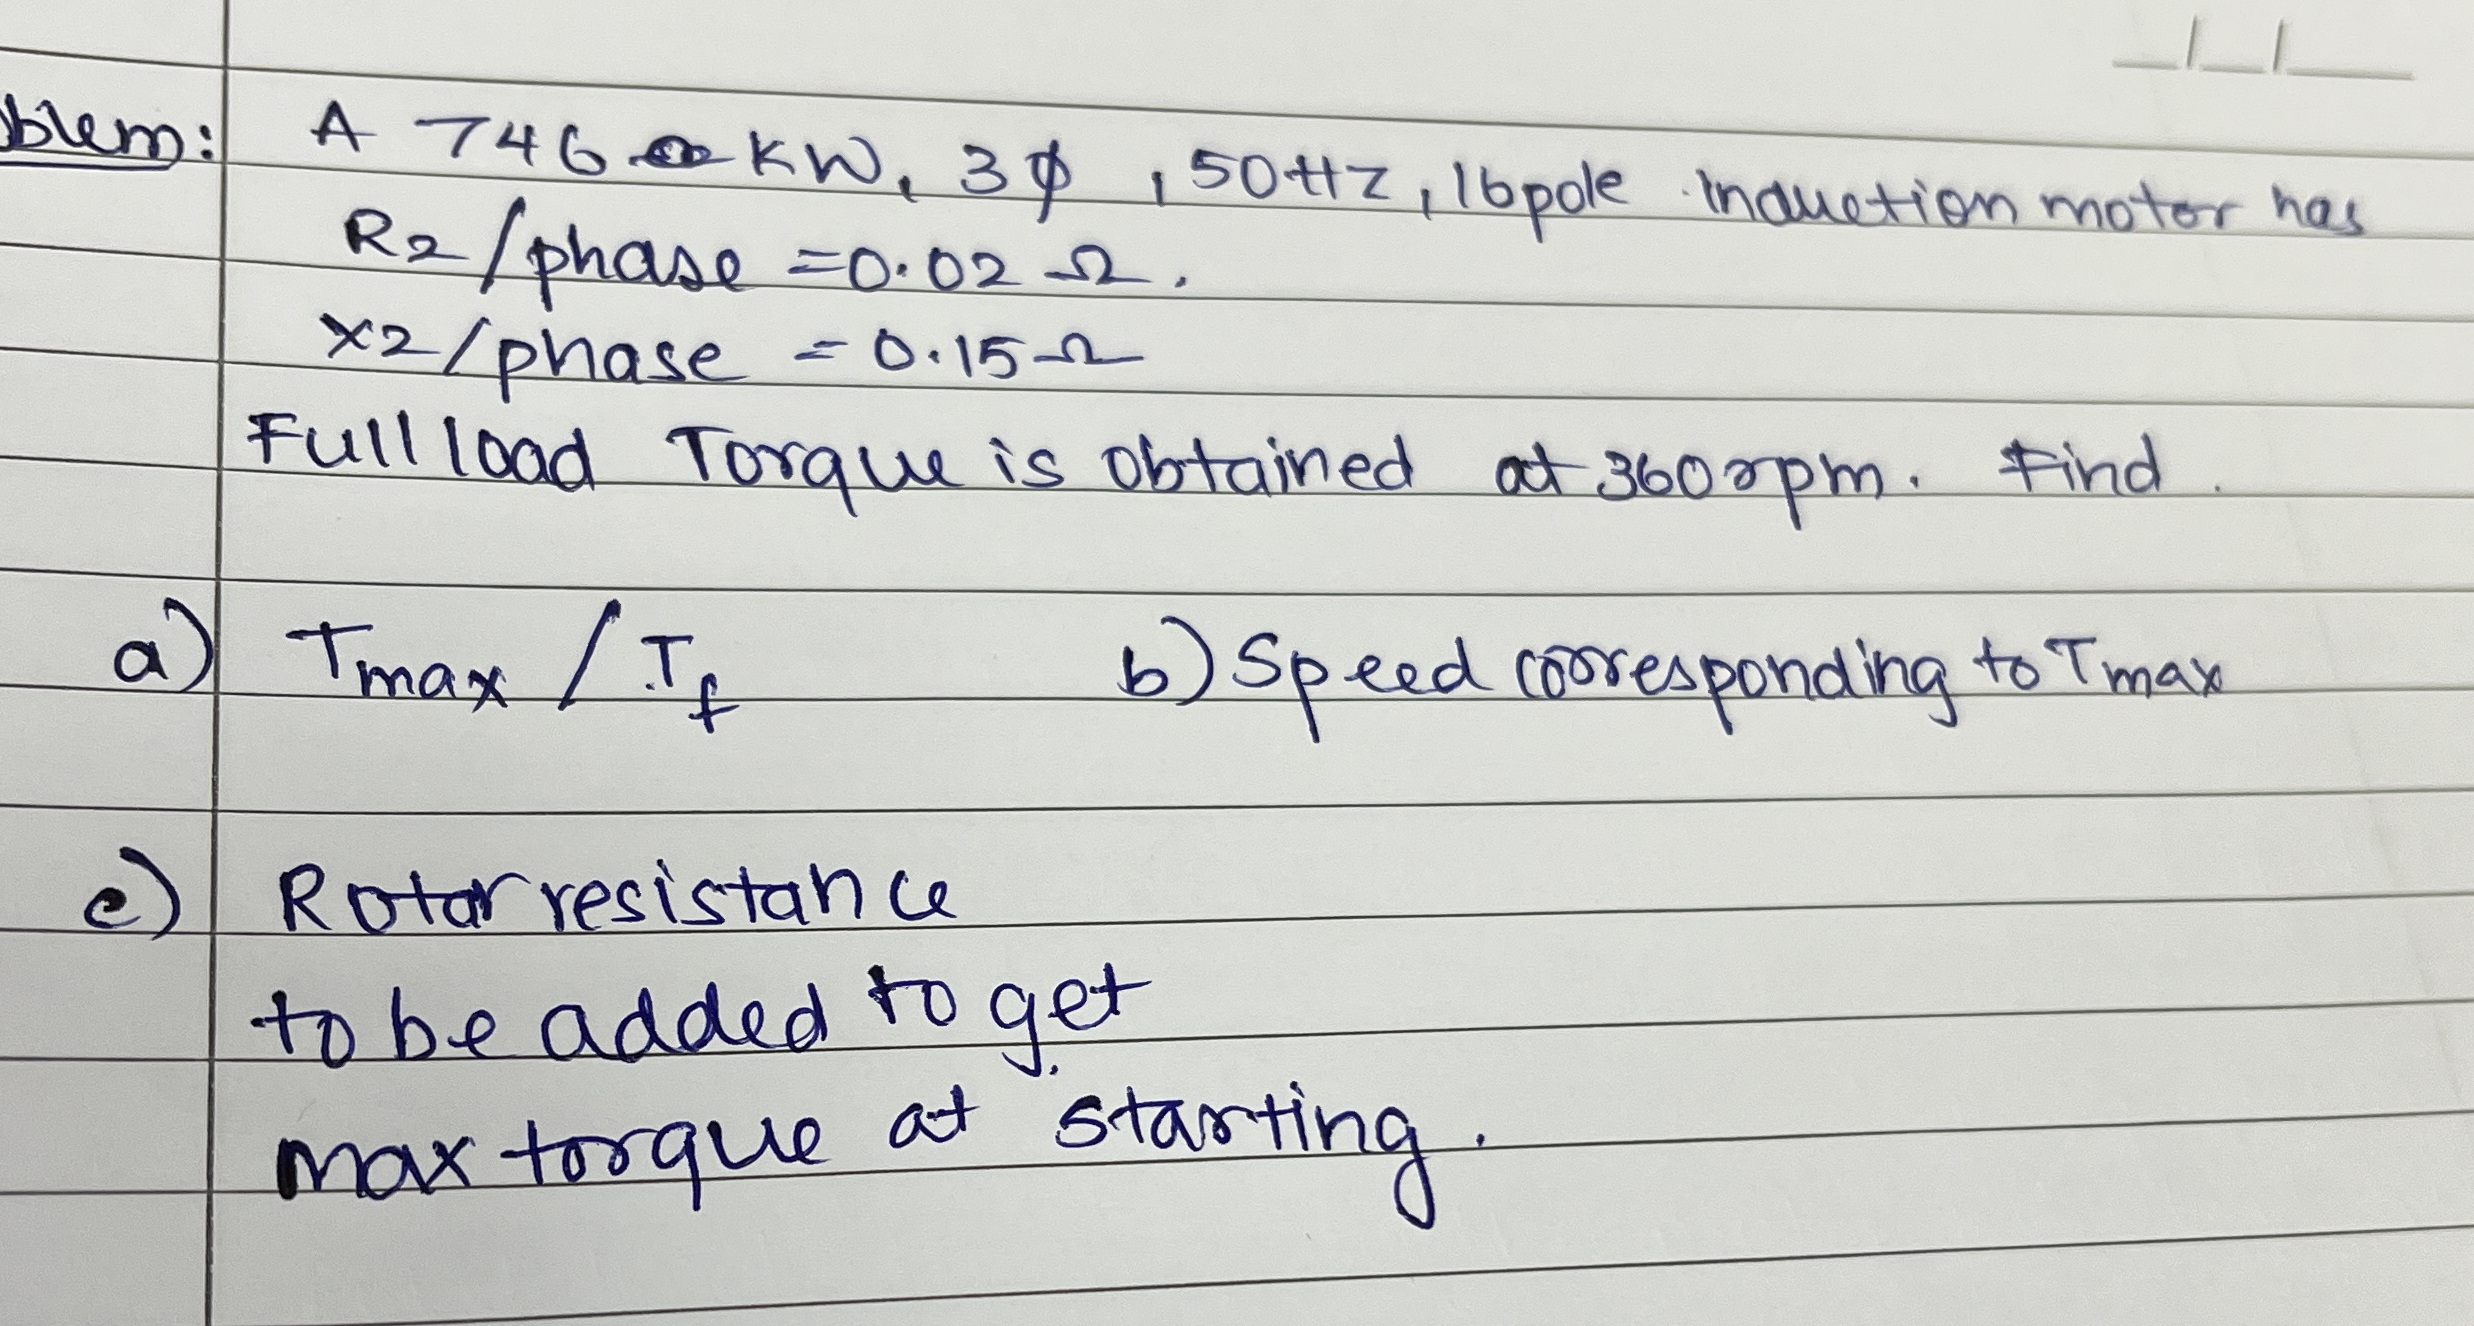 blem: A 746 KW, 3ϕ, 50Hz, 16pole Induction motor has
R2/phase = 0.02 Ω.
X2/phase = 0.15 Ω
Full load Torque is obtained at 360 rpm. Find.
a) Tmax / Tf b) Speed corresponding to Tmax
c) Rotor resistance
to be added to get
max torque at starting.